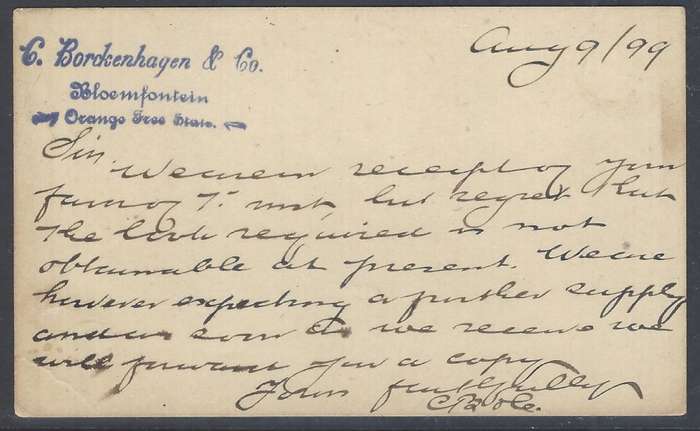 C. Borckenhagen & Co.
Bloemfontein
Orange Free State.
Aug 9/99
Sir.
We are in receipt of your
favor of 7. inst, but regret that
the book required is not
obtainable at present. We are
however expecting a further supply
and as soon as we receive we
will forward you a copy
Yours faithfully
CB & Co.